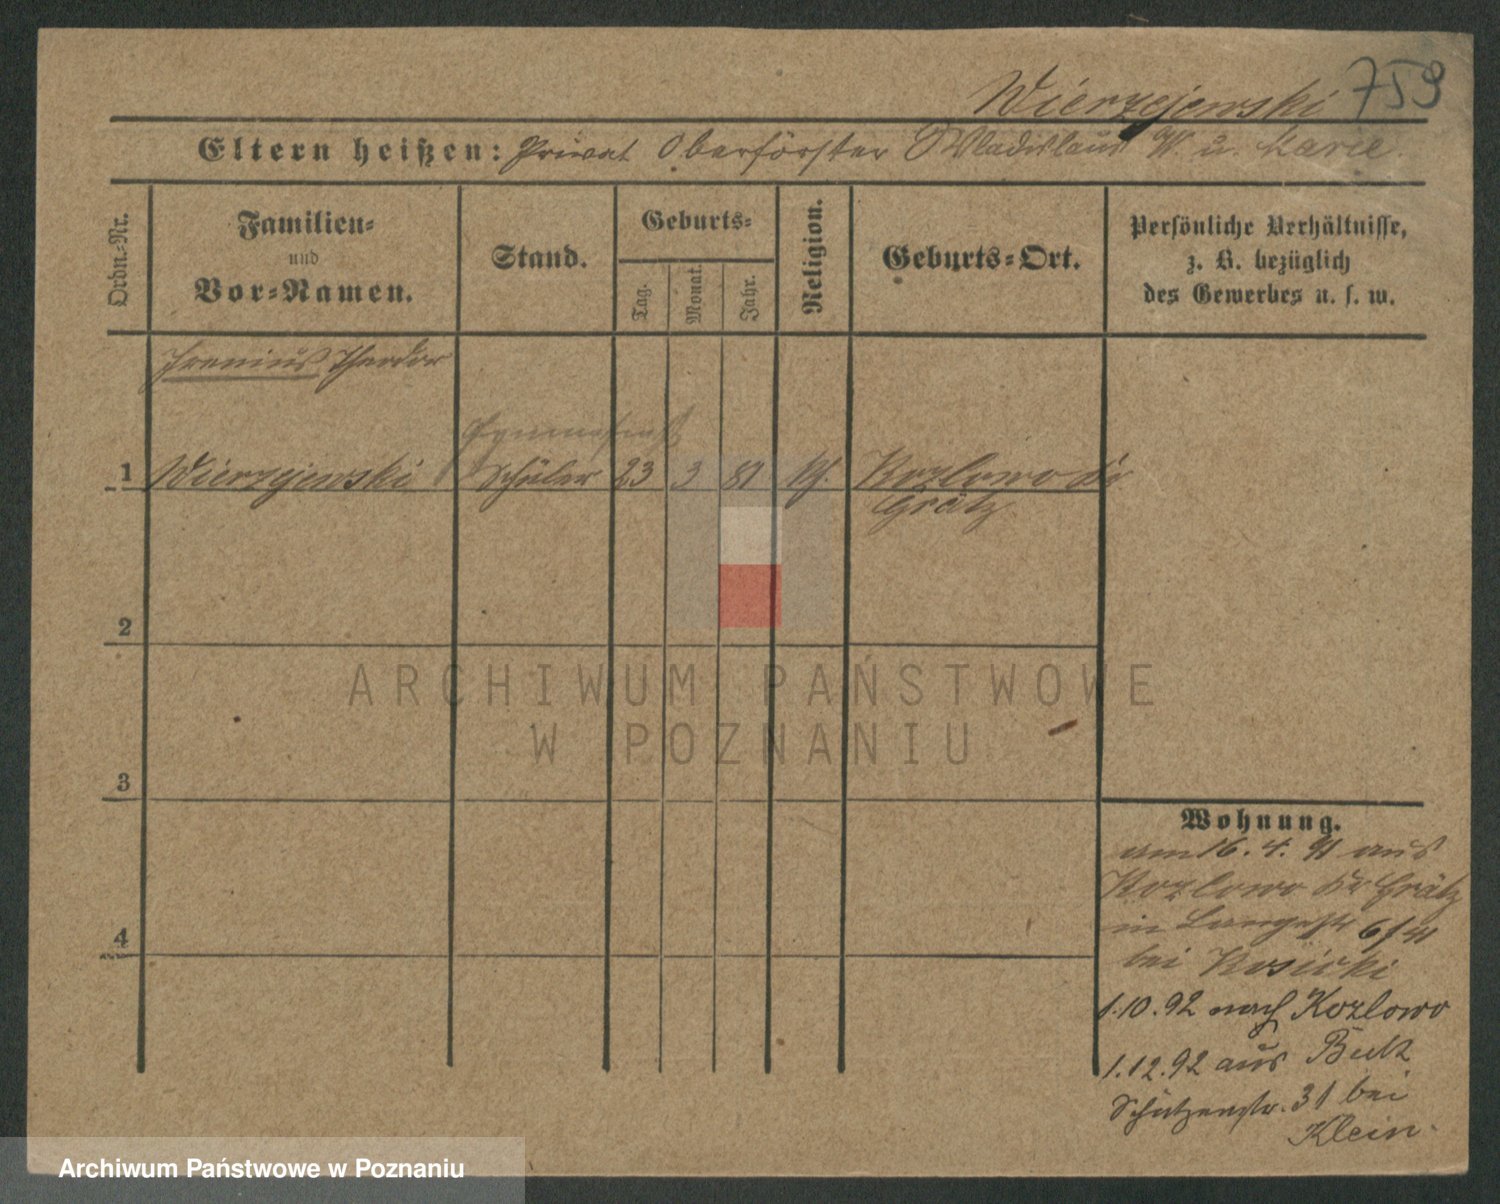 Wierzejewski 759
Eltern heißen: Privat Oberförster Wladislaus W. u. Marie.
Ordn.-Nr.
Familien-
und
Vor-Namen.
Stand.
Geburts-
Tag.
Monat.
Jahr.
Religion.
Geburts-Ort.
Persönliche Verhältnisse,
z. B. bezüglich
des Gewerbes u. s. w.
Irenius Theodor
1 Wierzejewski Schüler 23 3 81 kth. Kozlowo
Grätz
2
3
4
Wohnung.
am 16. 4. 91 aus
Kozlowo Kr Grätz
in Langestr 6/
bei Kosicki
1.10.92 nach Kozlowo
1.12.92 aus Buk
Schützenstr. 31 bei
Klein.
ARCHIWUM PAŃSTWOWE
W POZNANIU
Archiwum Państwowe w Poznaniu